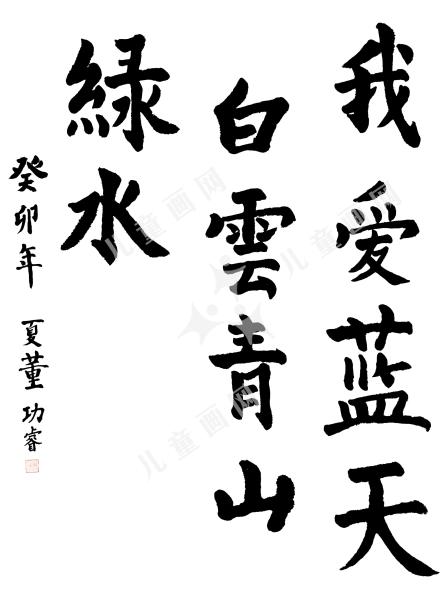 我爱蓝天
白雲青山
緑水
癸卯年 夏董功睿
儿童画网
儿童画网
儿童画网
儿童画网